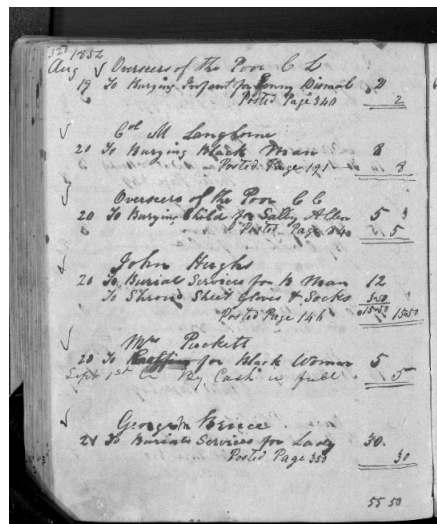 320 1852
Aug √ Overseers of the Poor C C
19 To Burying Infant for Penny Dismal 2
Posted Page 340 2
√ Col M Langhorne
20 To Burying Black Man 8
Posted Page 191 8
√ Overseers of the Poor C C
20 To Burying Child for Sally Allen 5
Posted Page 340 5
√ John Hughs
20 To Burial Services for B Man 12
To Shroud Sheet Gloves & Socks 3.50
15.50 15.50
Posted Page 146
√ Mrs Puckett
20 To for Black Woman 5
Sept 1st Cr By Cash in full 5
√ George Bruce
21 To Burial Services for Lady 30.
Posted Page 350 30
55 50